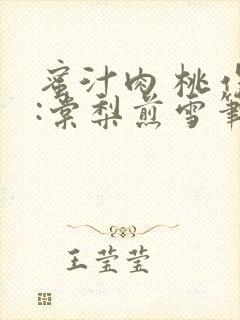 蜜汁肉桃作
:棠梨煎雪笔
王莹莹